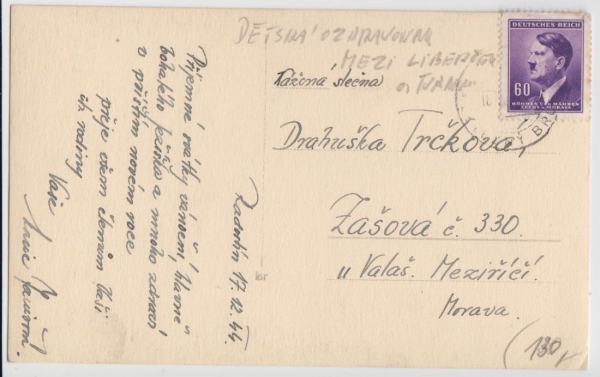 DĚTSKÁ OZDRAVOVNA
MEZI LIBERCEM
a
DEUTSCHES REICH
60
BÖHMEN UND MÄHREN
ČECHY A MORAVA
Vážená slečna
Drahuška Trčková,
Zašová č. 330.
u Valaš. Meziříčí.
Morava.
130,
Radotín 17.12.44.
Příjemné svátky vánoční, hlavně
bohatého ježíška a mnoho zdraví
v příštím novém roce
přeje všem členům Vaší
ct. rodiny
Vaše